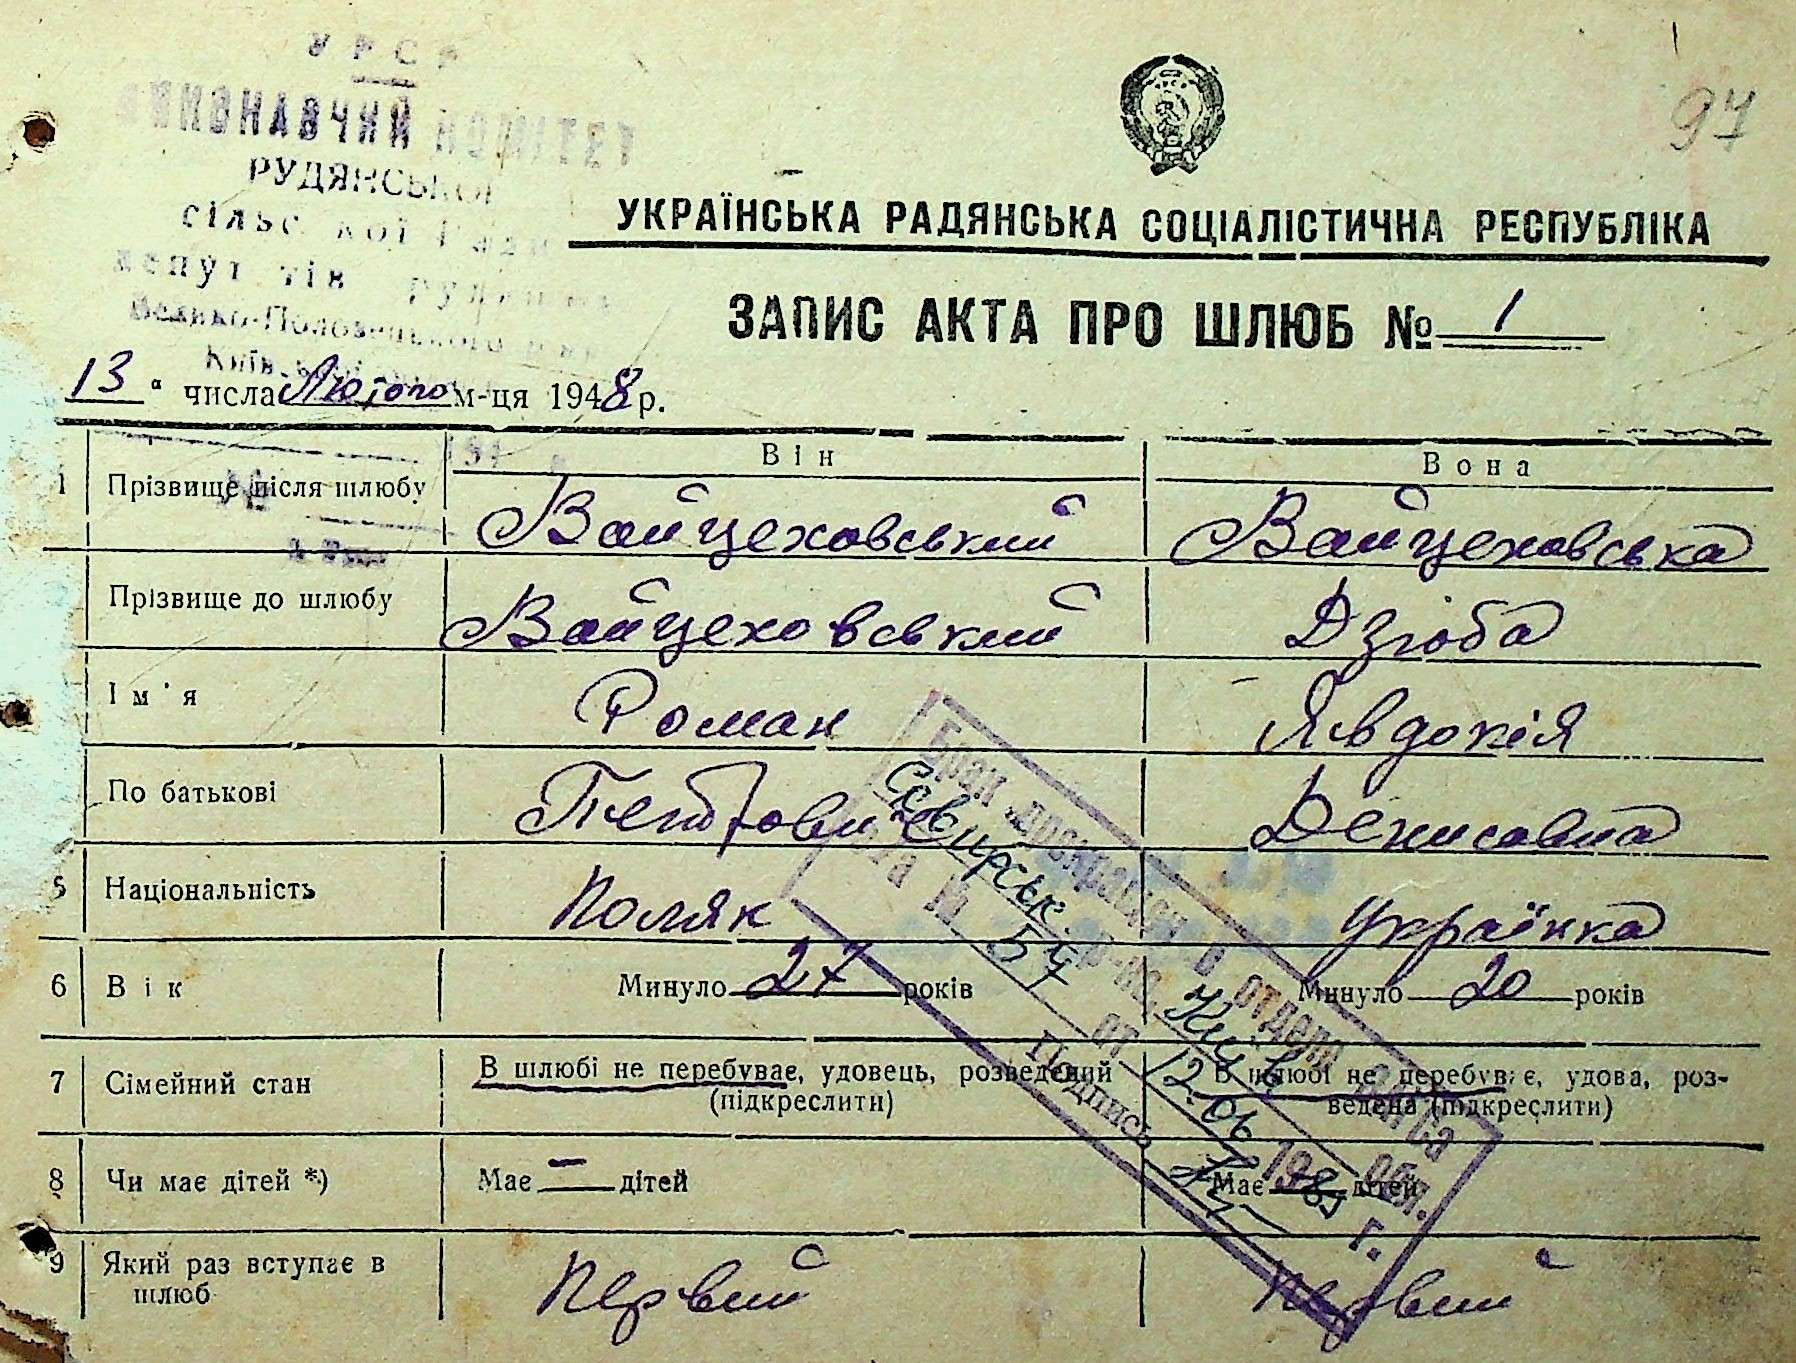 УРСР
ВИКОНАВЧИЙ КОМІТЕТ
РУДЯНСЬКОЇ
сільс кої Ради
депут тів
Велико-Половецького
97
УКРАЇНСЬКА РАДЯНСЬКА СОЦІАЛІСТИЧНА РЕСПУБЛІКА
ЗАПИС АКТА ПРО ШЛЮБ № 1
13 " числа Лютого м-ця 1948 р.
Він Вона
1 Прізвище після шлюбу Вайцеховський Вайцеховська
Прізвище до шлюбу Вайцеховський Дзюба
Ім'я Роман Явдокія
По батькові Петрович Денисовна
5 Національність Поляк Українка
6 Вік Минуло 27 років Минуло 20 років
7 Сімейний стан В шлюбі не перебуває, удовець, розведений В шлюбі не перебуває, удова, роз-
(підкреслити) ведена (підкреслити)
8 Чи має дітей *) Має — дітей Має — дітей
9 Який раз вступає в Первий Первий
шлюб
Брак расторгнут в отделе ЗАГСа
Сквирськ р-на, Київ Обл.
акта № 54 от 12 06 1985 г.
Подпись